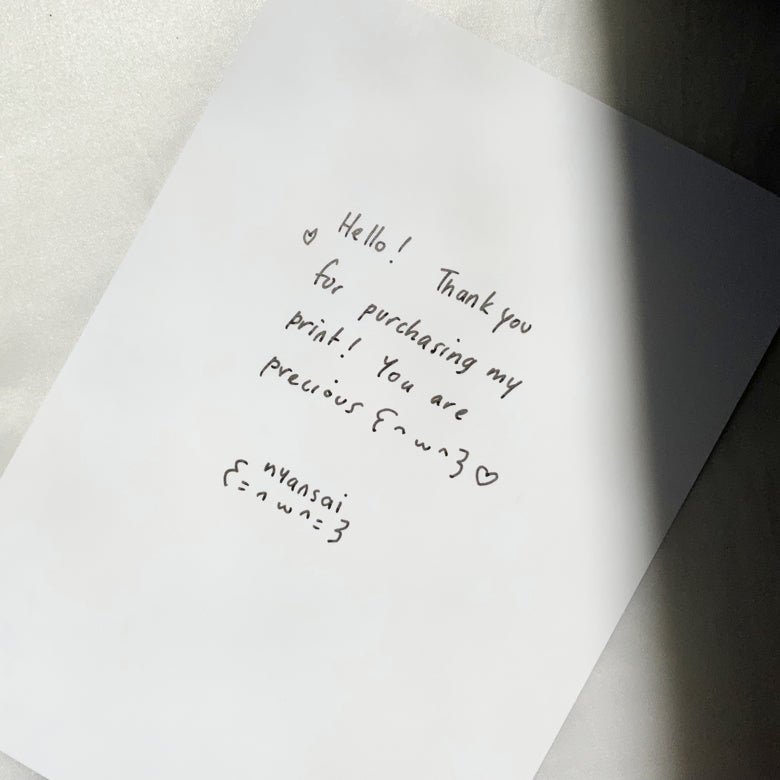 ♡ Hello! Thank you
for purchasing my
print! You are
precious {^w^}♡
nyansai
{=^w^=}